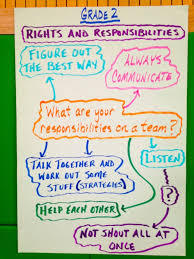 GRADE 2
RIGHTS AND RESPONSIBILITIES
FIGURE OUT
THE BEST WAY
ALWAYS
COMMUNICATE
What are your
responsibilities on a team?
TALK TOGETHER AND
WORK OUT SOME
STUFF (STRATEGIES)
LISTEN
?
HELP EACH OTHER
NOT SHOUT ALL AT
ONCE